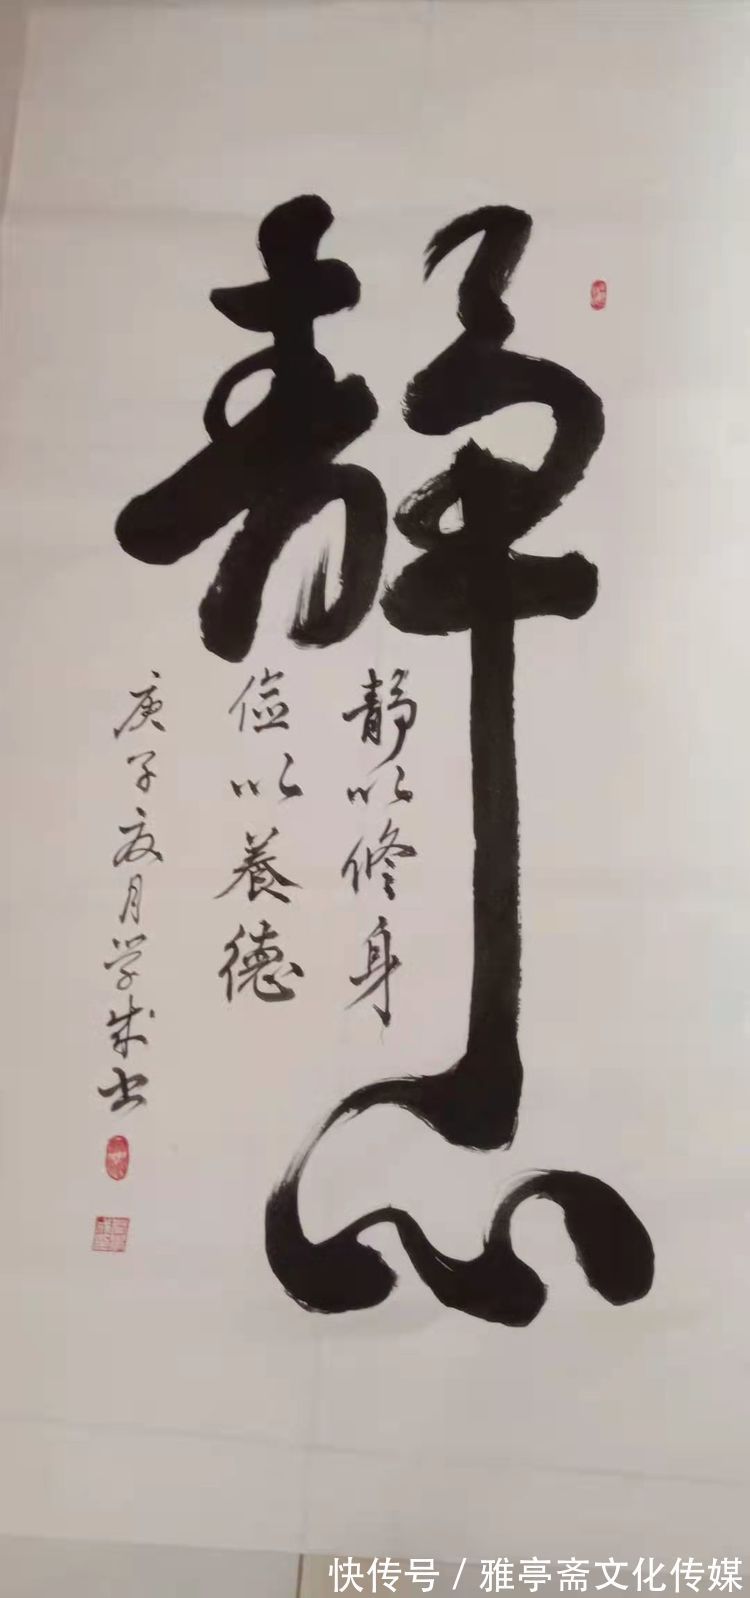 静心
静以修身
俭以养德
庚子夏月学成书
快传号 / 雅亭斋文化传媒